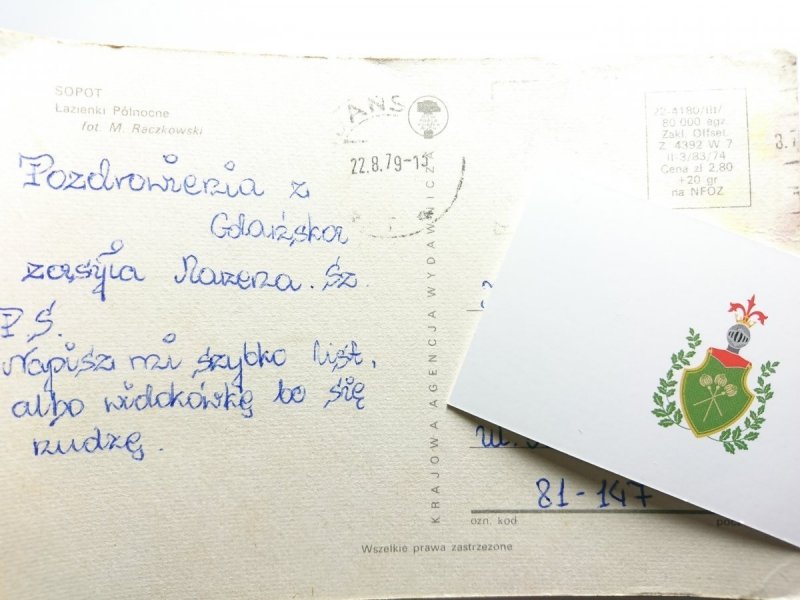 SOPOT
Łazienki Północne
fot. M. Raczkowski
Pozdrowienia z
Gdańska
zasyła Marzena. Sz.
P.S.
Napisz mi szybko list,
albo widokówkę bo się
nudzę.
22.8.79-15
KRAJOWA AGENCJA WYDAWNICZA
22-4180/III/
80 000 egz.
Zakł. Offset.
Z. 4392 W 7
II-3/83/74
Cena zł 2,80
+20 gr
na NFOZ
3.7
ul.
81-147
ozn. kod
Wszelkie prawa zastrzeżone